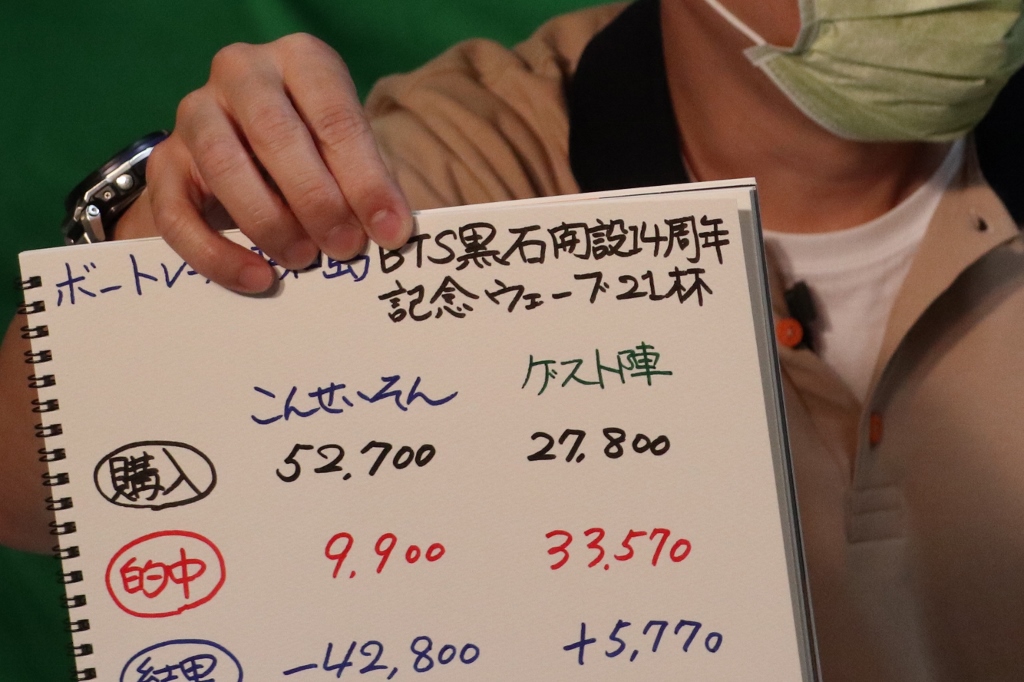 ボートレー BTS黒石開設14周年
記念ウェーブ21杯
こんせいそん ゲスト陣
購入 52,700 27,800
的中 9,900 33,570
結果 -42,800 +5,770